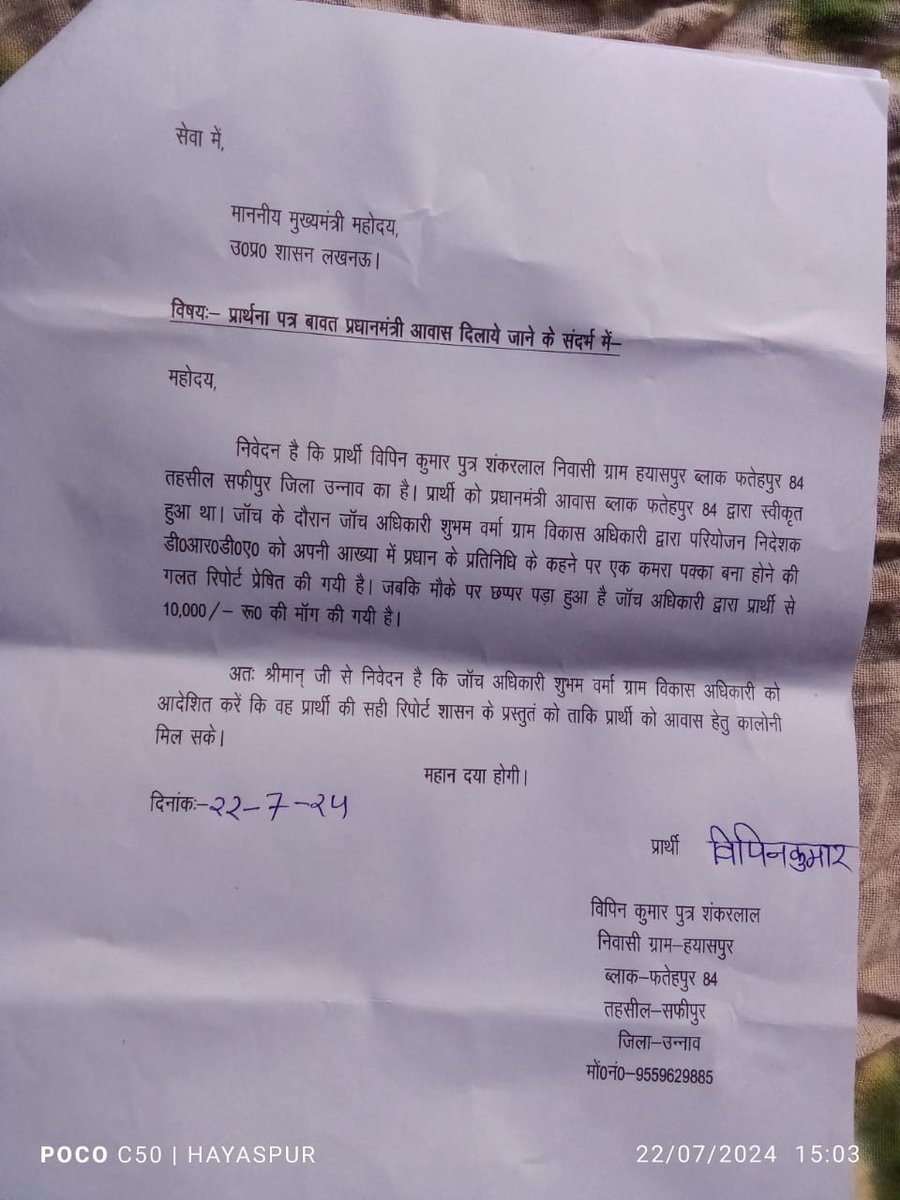 सेवा में,
माननीय मुख्यमंत्री महोदय,
उ0प्र0 शासन लखनऊ।
विषयः– प्रार्थना पत्र बावत प्रधानमंत्री आवास दिलाये जाने के संदर्भ में–
महोदय,
निवेदन है कि प्रार्थी विपिन कुमार पुत्र शंकरलाल निवासी ग्राम हयासपुर ब्लाक फतेहपुर 84
तहसील सफीपुर जिला उन्नाव का है। प्रार्थी को प्रधानमंत्री आवास ब्लाक फतेहपुर 84 द्वारा स्वीकृत
हुआ था। जॉच के दौरान जॉच अधिकारी शुभम वर्मा ग्राम विकास अधिकारी द्वारा परियोजन निदेशक
डी0आर0डी0ए0 को अपनी आख्या में प्रधान के प्रतिनिधि के कहने पर एक कमरा पक्का बना होने की
गलत रिपोर्ट प्रेषित की गयी है। जबकि मौके पर छप्पर पड़ा हुआ है जॉच अधिकारी द्वारा प्रार्थी से
10,000/– रू0 की मॉग की गयी है।
अतः श्रीमान् जी से निवेदन है कि जॉच अधिकारी शुभम वर्मा ग्राम विकास अधिकारी को
आदेशित करें कि वह प्रार्थी की सही रिपोर्ट शासन के प्रस्तुतं को ताकि प्रार्थी को आवास हेतु कालोनी
मिल सके।
महान दया होगी।
दिनांकः–२२–7–२५
प्रार्थी विपिनकुमार
विपिन कुमार पुत्र शंकरलाल
निवासी ग्राम–हयासपुर
ब्लाक–फतेहपुर 84
तहसील–सफीपुर
जिला–उन्नाव
मों0नं0–9559629885
POCO C50 | HAYASPUR
22/07/2024 15:03